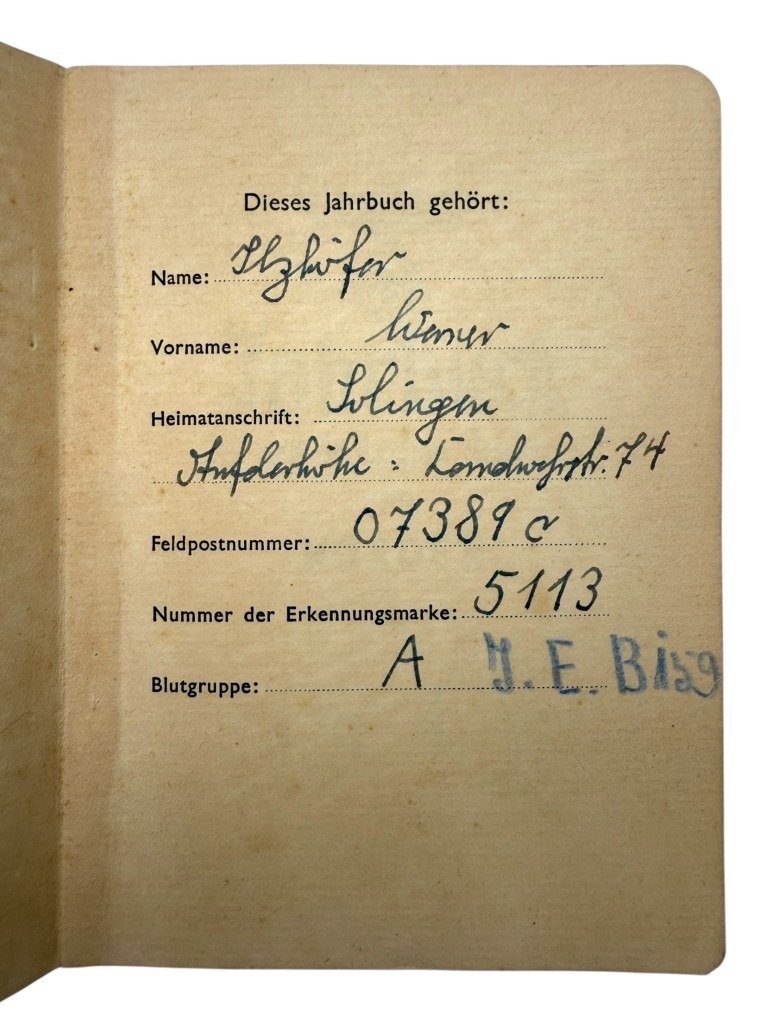 Dieses Jahrbuch gehört:
Name: Ilzhöfer
Vorname: Werner
Heimatanschrift: Solingen
Aufderhöhe : Landwehrstr. 74
Feldpostnummer: 07389 c
Nummer der Erkennungsmarke: 5113
Blutgruppe: A J. E. B i59